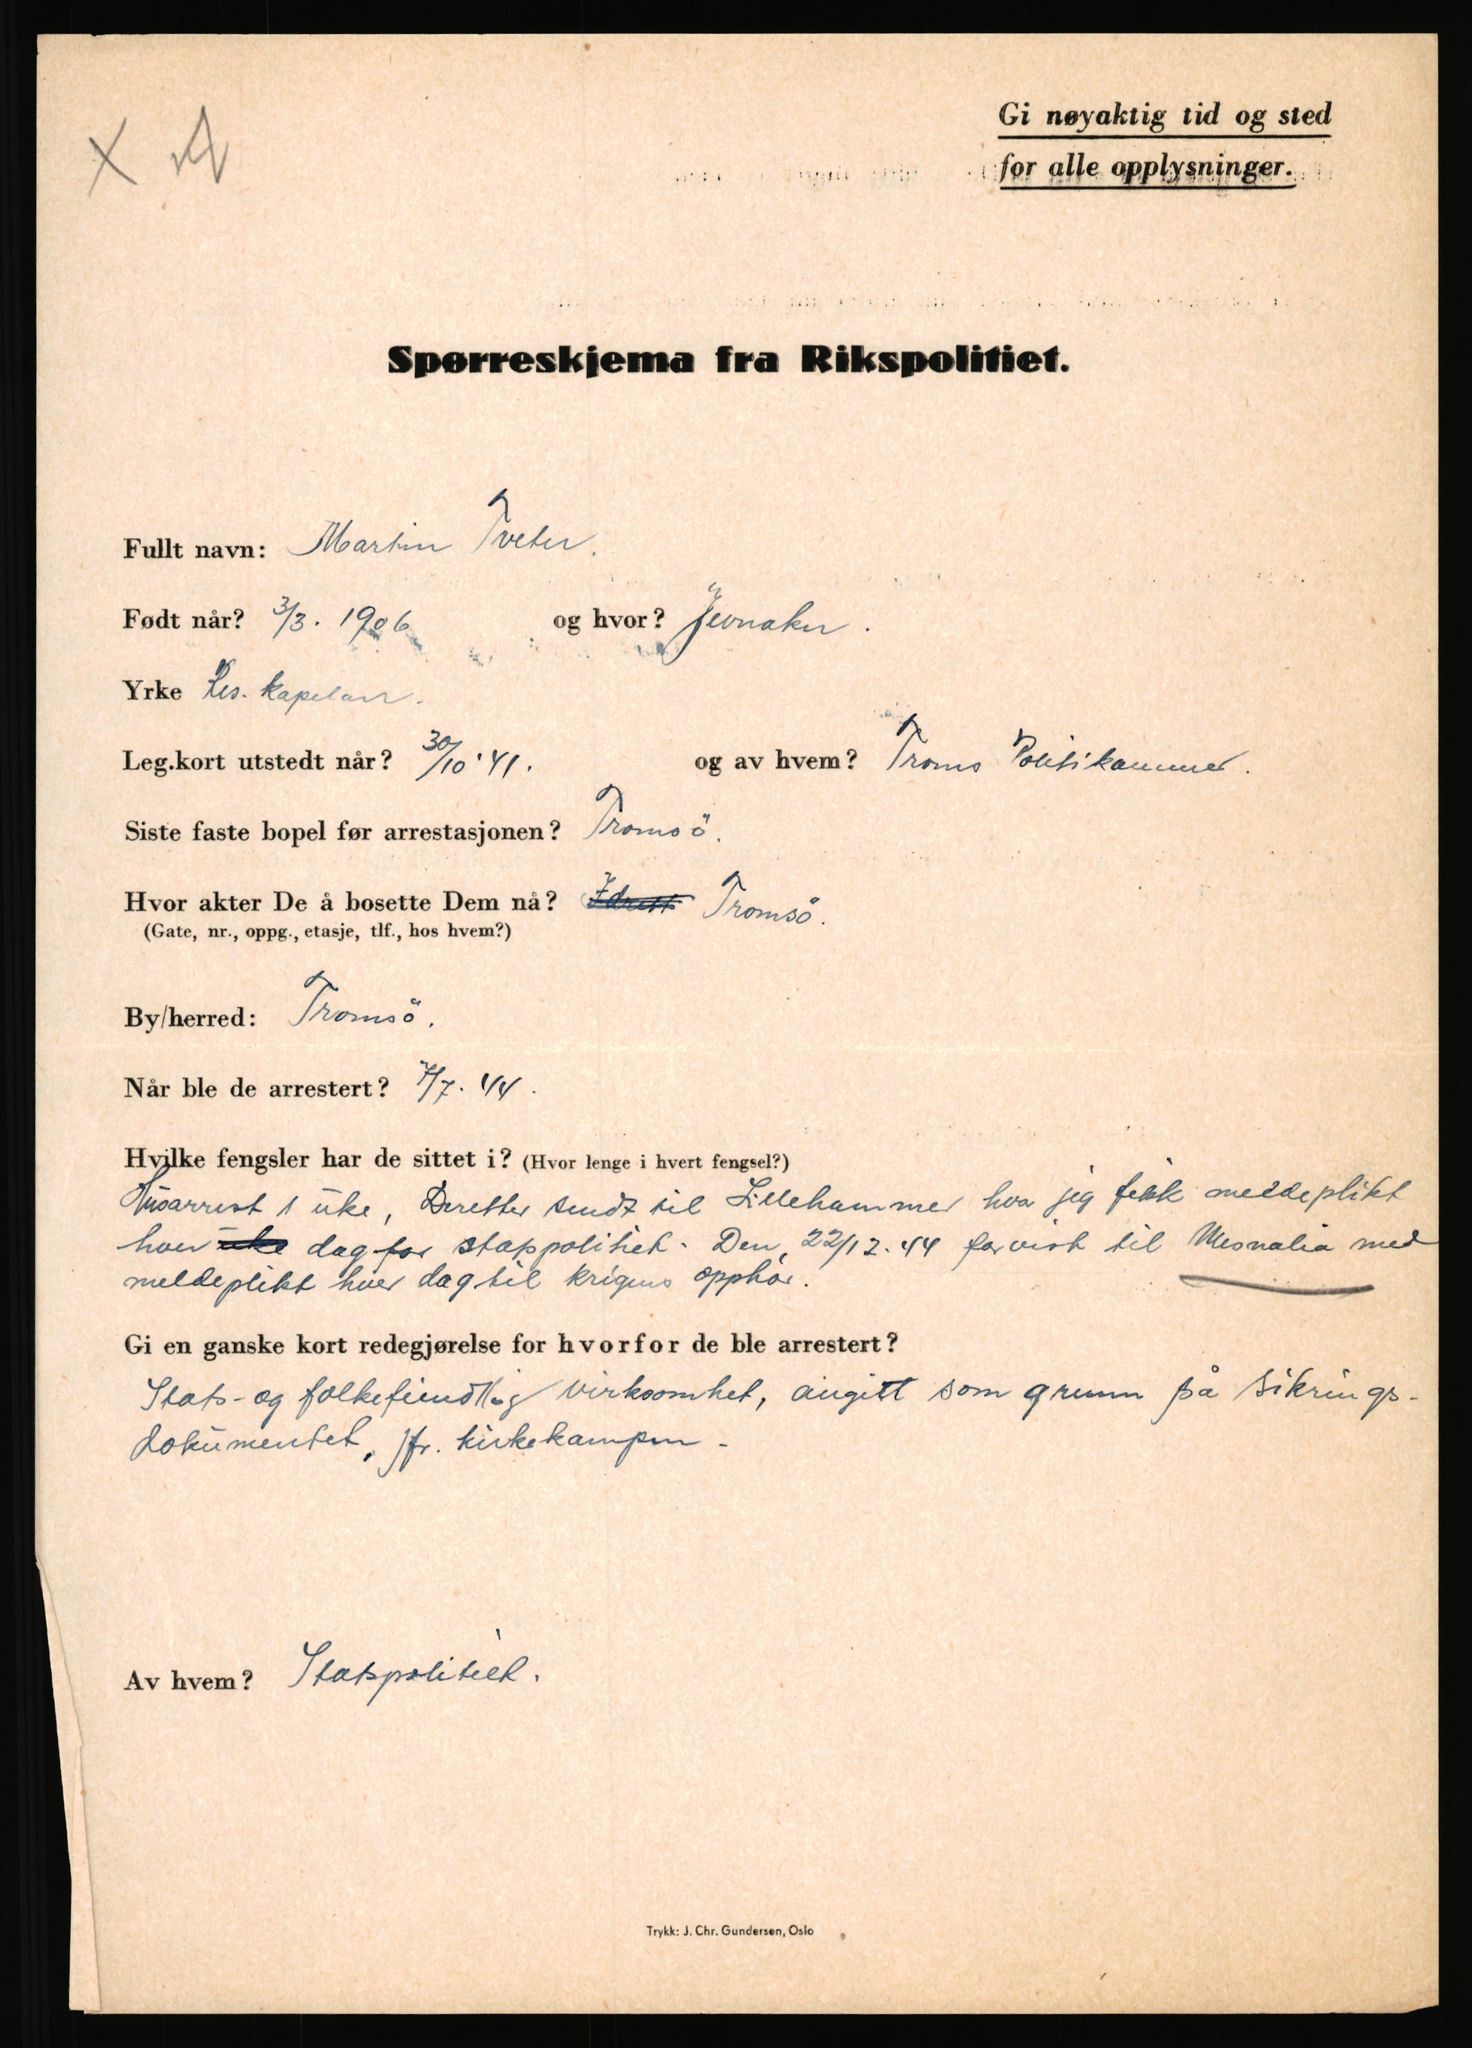 Gi nøyaktig tid og sted
for alle opplysninger.
Spørreskjema fra Rikspolitiet.
Fullt navn: Martin Tveter.
Født når? 3/3. 1906 og hvor? Jevnaker.
Yrke Res. kapelan.
Leg.kort utstedt når? 30/10 '41. og av hvem? Troms Politikammer.
Siste faste bopel før arrestasjonen? Tromsö.
Hvor akter De å bosette Dem nå? Idrett Tromsö.
(Gate, nr., oppg., etasje, tlf., hos hvem?)
By/herred: Tromsö.
Når ble de arrestert? 7/7. 44.
Hvilke fengsler har de sittet i? (Hvor lenge i hvert fengsel?)
Husarrest 1 uke, Deretter sendt til Lillehammer hvor jeg fikk meldeplikt
hver uke dag for stappolitiet. Den 22/12. 44 forvist til Mesnalia med
meldeplikt hver dag til krigens opphör.
Gi en ganske kort redegjørelse for hvorfor de ble arrestert?
Stats- og folkefiendtlig virksomhet, angitt som grunn på sikrings-
dokumentet, jfr. kirkekampen.
Av hvem? Statspolitiet.
Trykk: J. Chr. Gundersen, Oslo